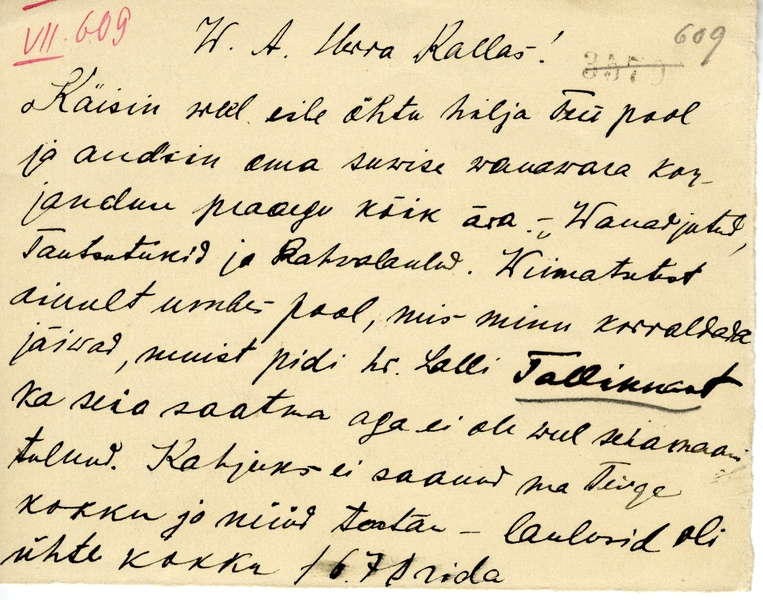 VII. 609
609
W. A. Herra Kallas!
Käisin weel eile õhtu hilja Teie pool
ja andsin oma suwise wanawara kor-
janduse praegu kõik ära. - „Wanad jutud,
Tantsutükid ja Rahvalaulud. Wiimatsetest
ainult umbes pool, mis minu korraldada
jäiwad, muist pidi hr. Lalli Tallinnast
ka seia saatma aga ei ole weel seiamaani
tulnud. Kahjuks ei saanud ma Teiega
kokku ja nüüd teatan – laulusid oli
ühte kokku / 6.7 rida